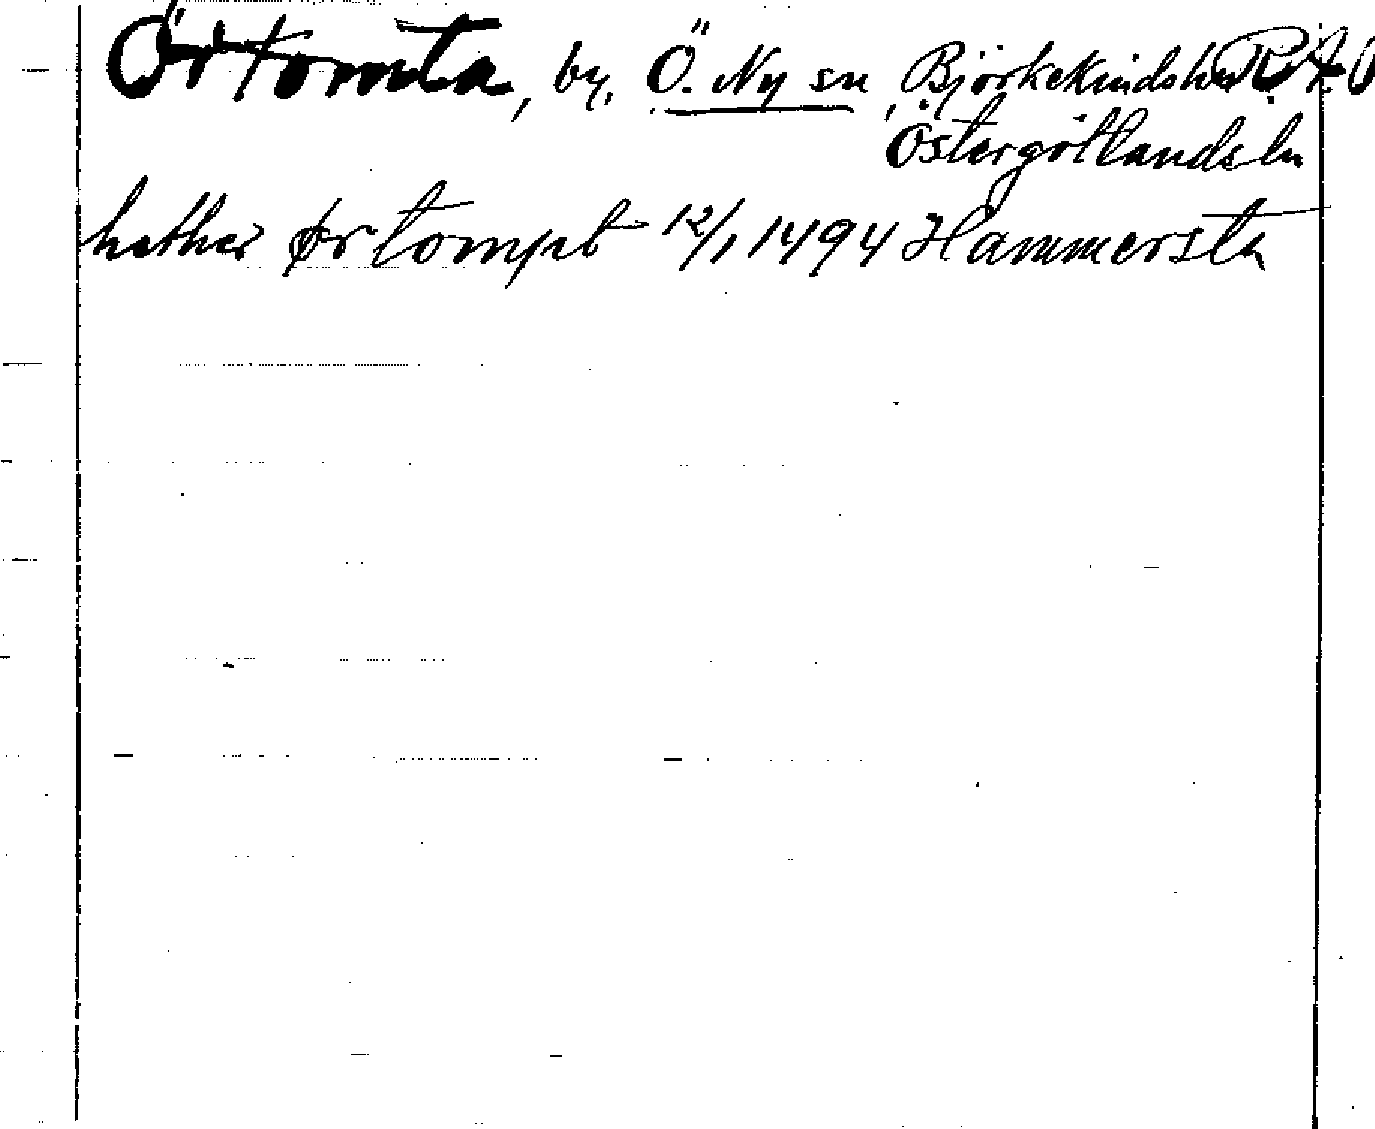 Örtomta, by, Ö. Ny sn, Björkekinds hd R.A.O
Östergötlands ln
hether ørtompt 12/1 1494 Hammersta